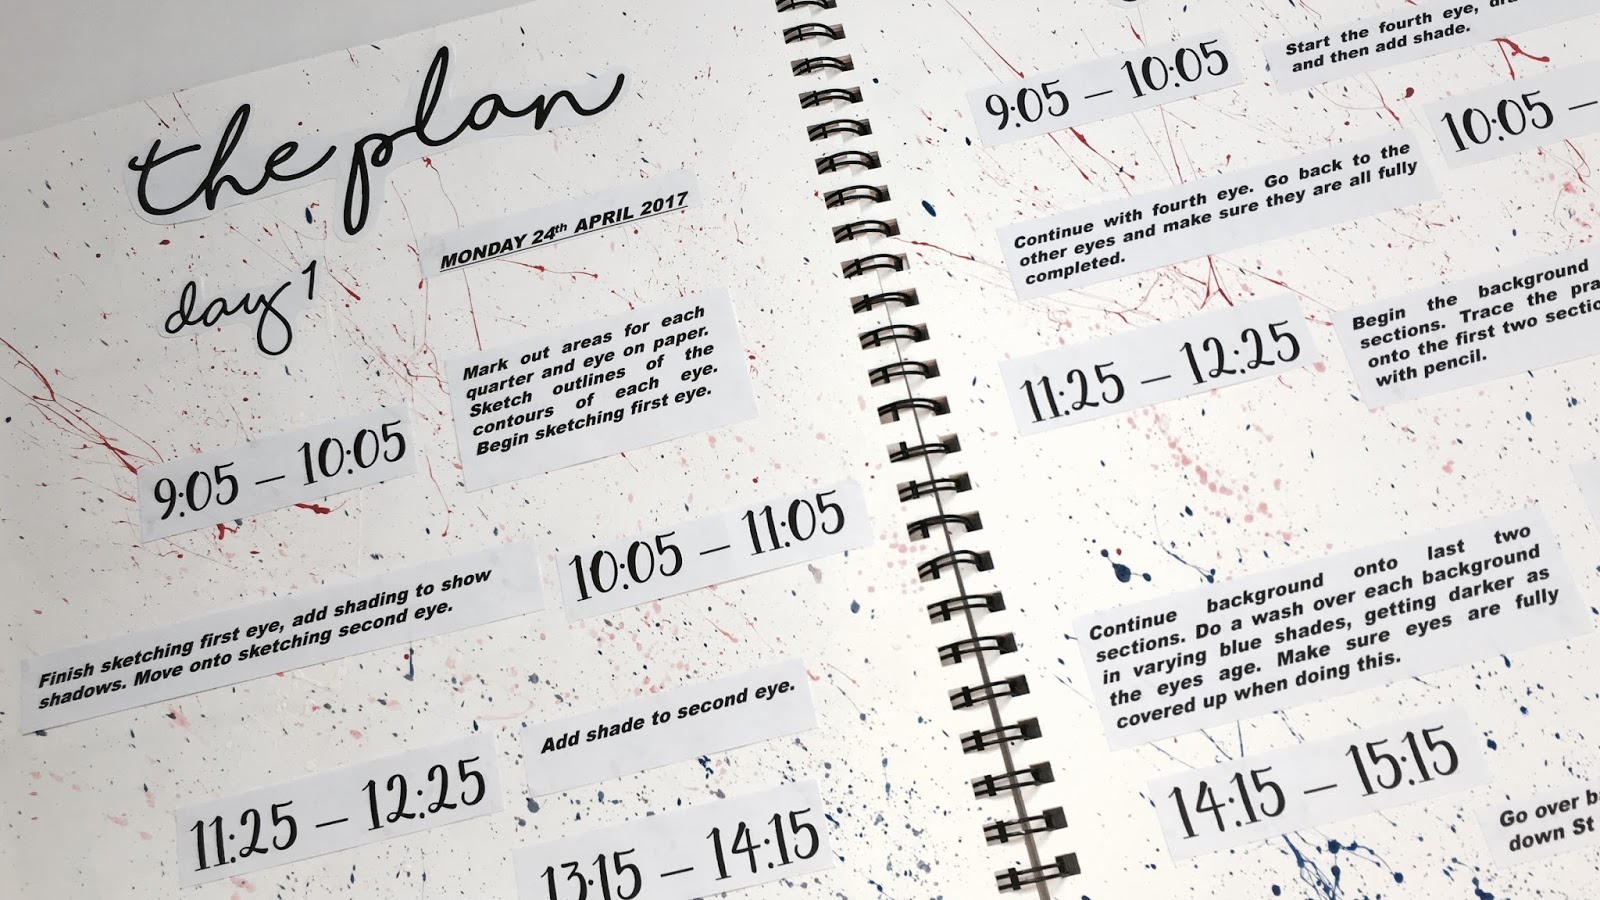 the plan
MONDAY 24th APRIL 2017
day 1
Mark out areas for each
quarter and eye on paper.
Sketch outlines of the
contours of each eye.
Begin sketching first eye.
9:05 – 10:05
10:05 – 11:05
Finish sketching first eye, add shading to show
shadows. Move onto sketching second eye.
Add shade to second eye.
11:25 – 12:25
13:15 – 14:15
Start the fourth eye,
and then add shade.
9:05 – 10:05
10:05 –
Continue with fourth eye. Go back to the
other eyes and make sure they are all fully
completed.
Begin the background
sections. Trace the
onto the first two
with pencil.
11:25 – 12:25
Continue background onto last two
sections. Do a wash over each background
in varying blue shades, getting darker as
the eyes age. Make sure eyes are fully
covered up when doing this.
14:15 – 15:15
Go over
down St